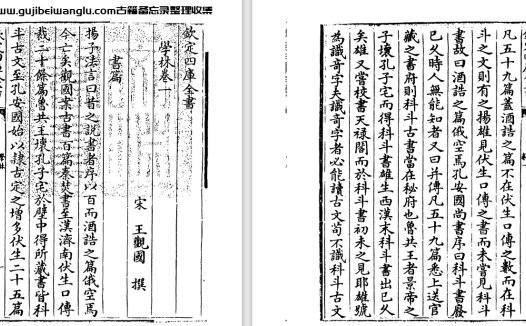 www.gujibeiwanglu.com古籍备忘录整理收集
欽定四庫全書
學林卷一
宋 王觀國 撰
書篇
揚子法言曰昔之說書者序以百而酒誥之篇俄空焉
今亡矣觀國案古書百篇秦焚書至漢濟南伏生口傳
裁二十餘篇魯共王壞孔子宅於壁中得所藏書皆科
斗古文至孔安國始以隸古定之增多伏生二十五篇
凡五十九篇蓋酒誥之篇不在伏生口傳之數而在科
斗之文則有之揚雄見伏生口傳之書而未嘗見科斗
書故曰酒誥之篇俄空焉孔安國尚書序曰科斗書廢
已久時人無能知者又曰并傳凡五十九篇悉上送官
藏之書府則科斗古書當在秘府也魯共王者景帝之
子壞孔子宅而得科斗書雄生西漢末科斗書出已久
矣雄又嘗校書天禄閣而於科斗書初未之見耶雄號
為識奇字夫識奇字者必能讀古文苟不識科斗古文